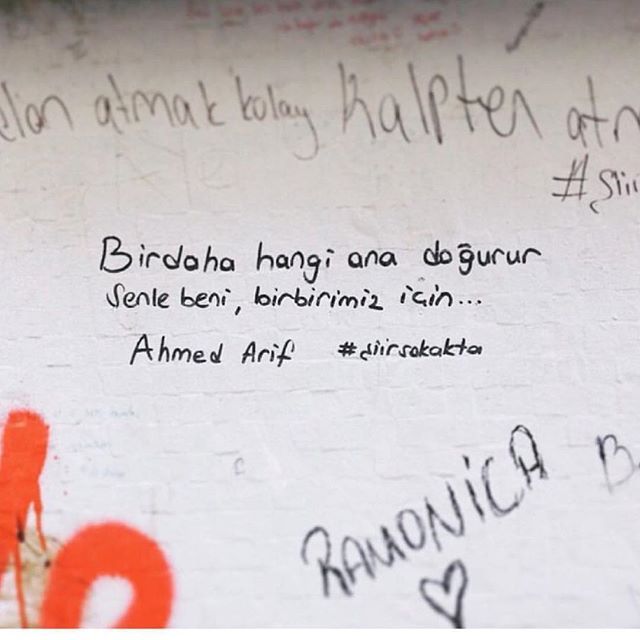 atmak kolay kalpten
Birdaha hangi ana doğurur
Senle beni, birbirimiz için...
Ahmed Arif #şiirsokakta
RAMONiCA